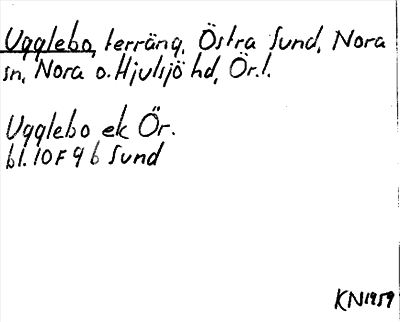 Ugglebo, terräng, Östra Sund, Nora
sn, Nora o. Hjulsjö hd, Ör. l.
Ugglebo ek Ör.
bl. 10F 9b Sund
KN1959